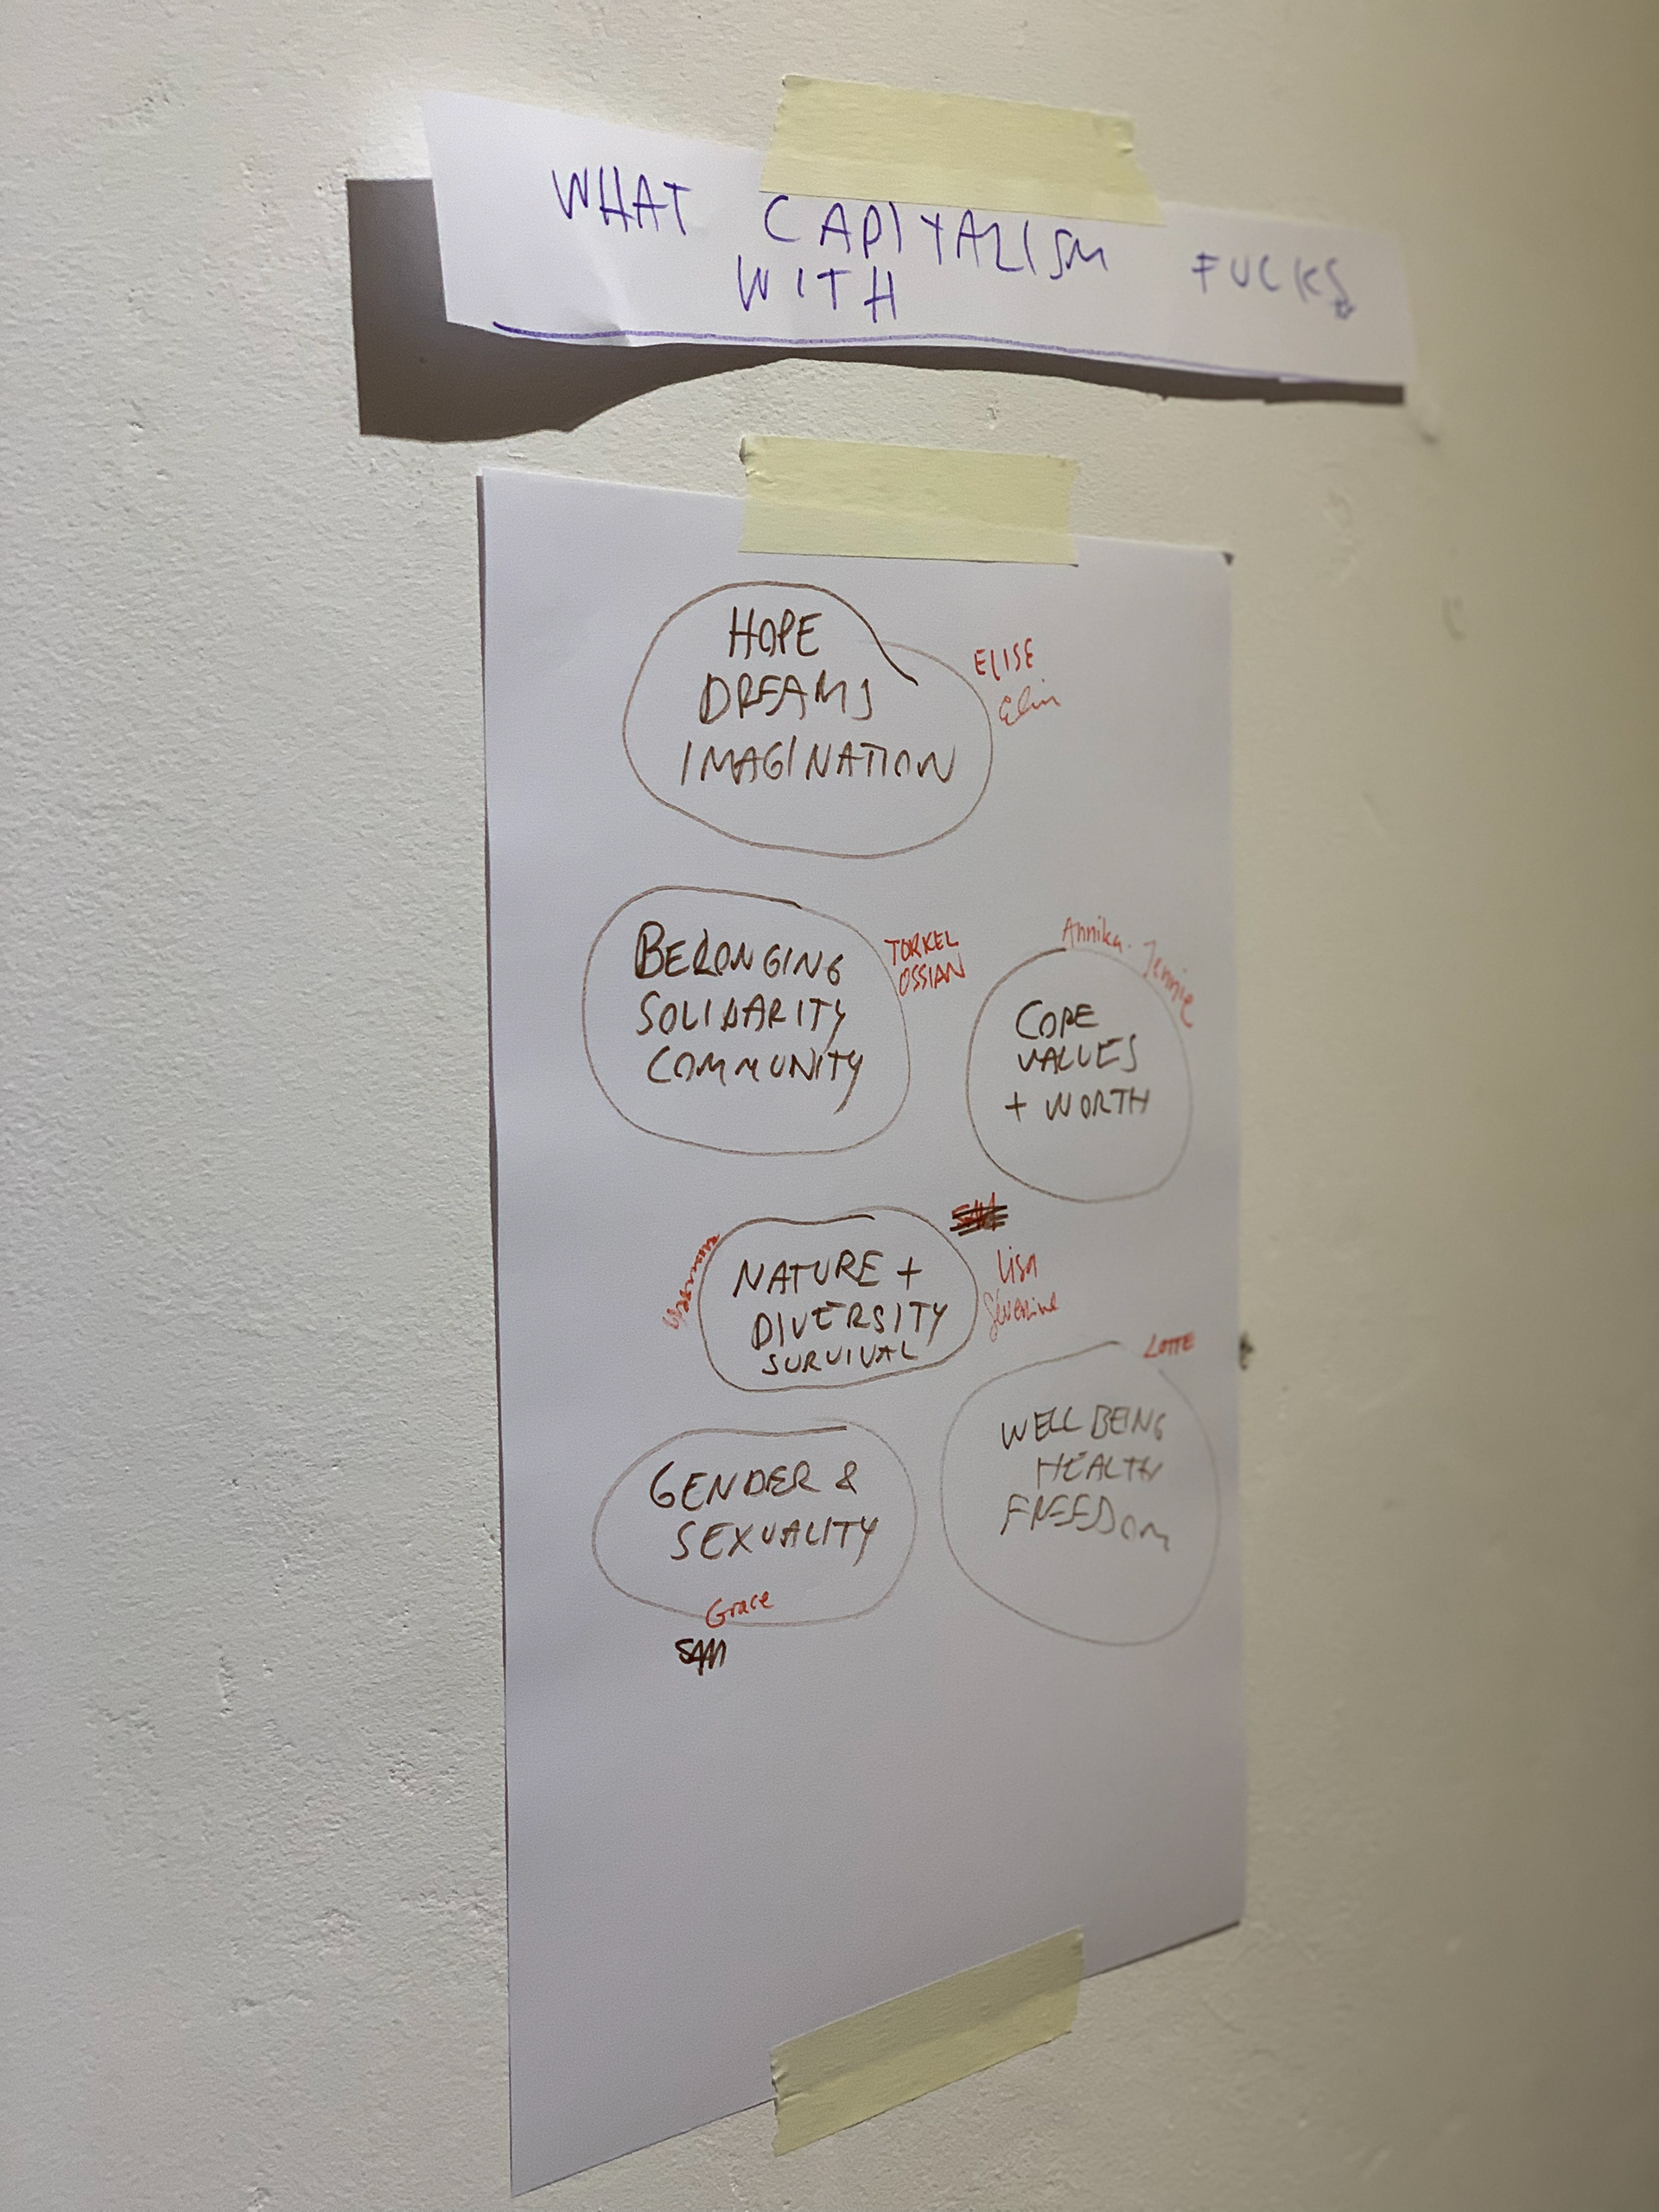 WHAT CAPITALISM FUCKS
WITH
HOPE
DREAMS
IMAGINATION
ELISE
Elin
BELONGING
SOLIDARITY
COMMUNITY
TORKEL
OSSIAN
Annika. Jennie
CORE
VALUES
+ WORTH
NATURE +
DIVERSITY
SURVIVAL
Lisa
Séverine
LOTTE
WELL BEING
HEALTH
FREEDOM
GENDER &
SEXUALITY
Grace
SAM